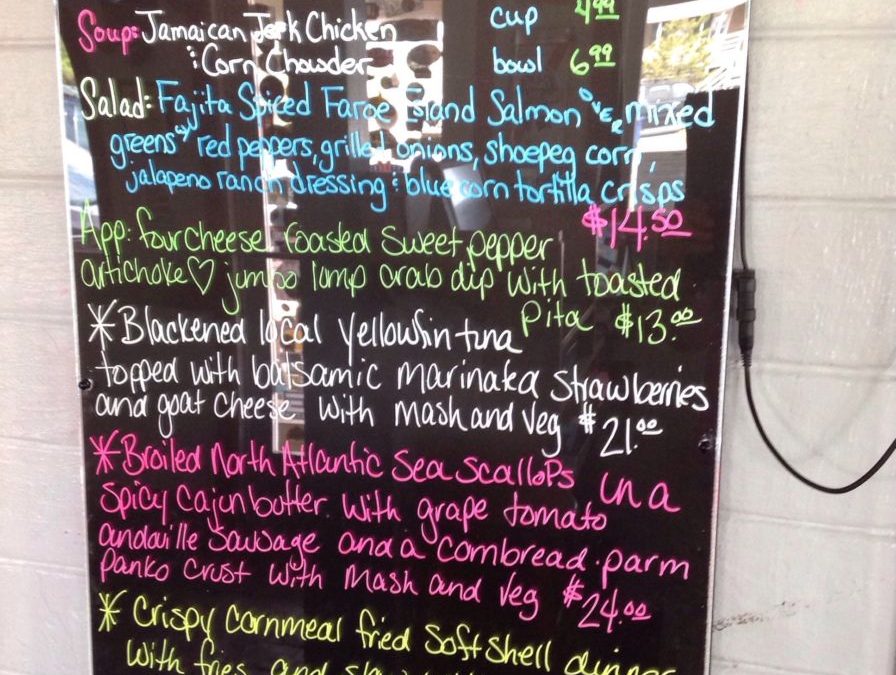 Soup: Jamaican Jerk Chicken cup 4.99
: Corn Chowder bowl 6.99
Salad: Fajita Spiced Faroe Island Salmon OVER mixed
greens w/ red peppers, grilled onions, shoepeg corn,
jalapeno ranch dressing : blue corn tortilla crisps
$14.50
App: four cheese roasted sweet pepper
artichoke ♡ jumbo lump crab dip with toasted
pita $13.00
*Blackened local yellowfin tuna
topped with balsamic marinata strawberries
and goat cheese with mash and veg $21.00
*Broiled North Atlantic Sea Scallops in a
spicy cajun butter with grape tomato
andouille sausage and a cornbread.parm
panko crust with mash and veg $24.00
* Crispy cornmeal fried Soft Shell dinner
with fries and